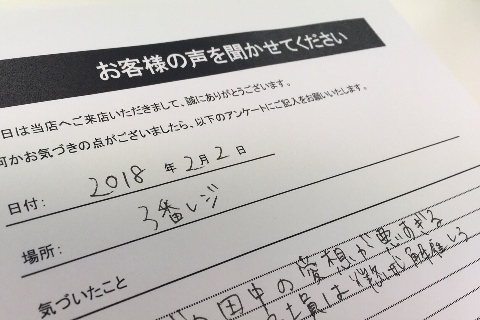 お客様の声を聞かせてください
日は当店へご来店いただきまして、誠にありがとうございます。
何かお気づきの点がございましたら、以下のアンケートにご記入をお願いいたします。
日付: 2018年2月2日
場所: 3番レジ
気づいたこと
田中の愛想が悪すぎる
は 解雇しろ